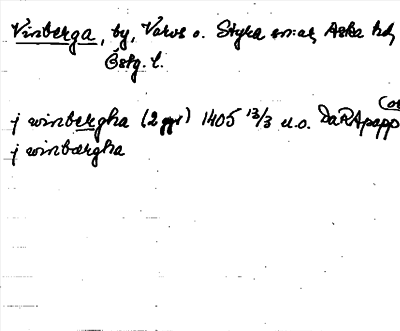 Vinberga, by, Varvs o. Styra snar, Aska hd,
Östg. l.
j winbergha (2 ggr) 1405 13/3 u.o. DaRApapp
j winbærgha